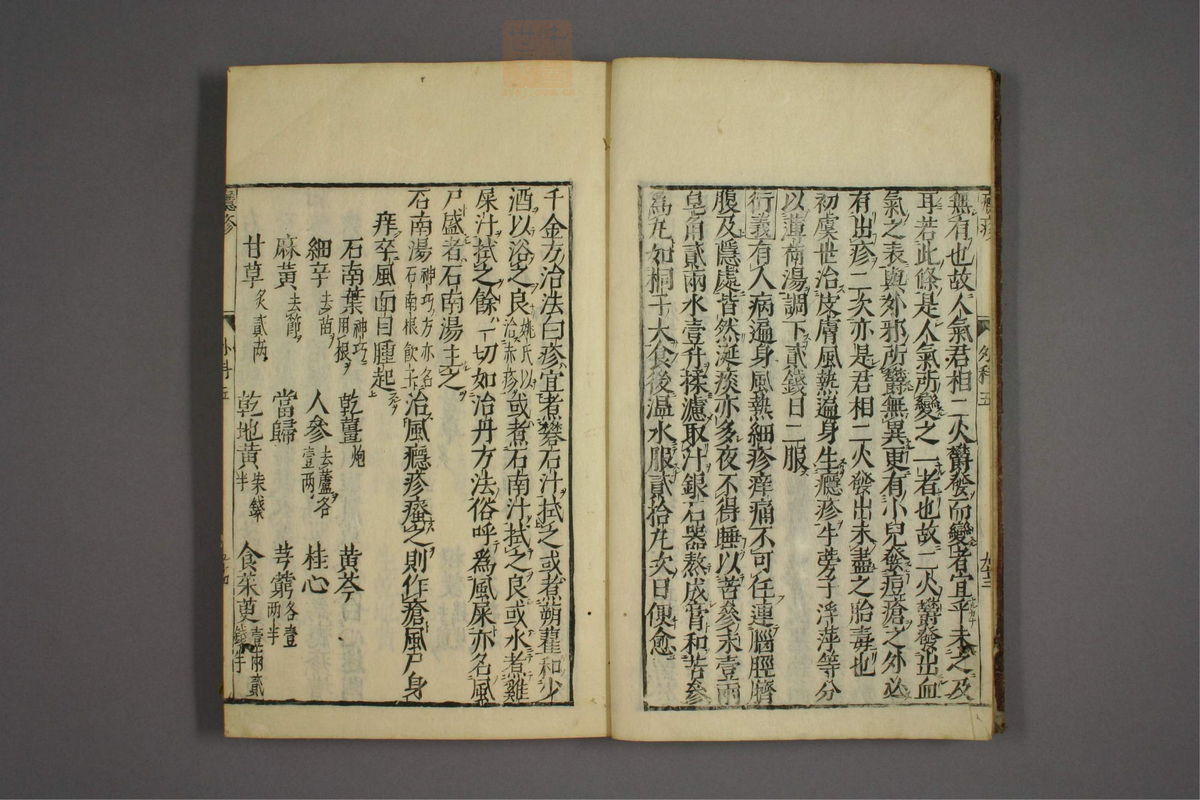 無有也故人氣君相二火欝發而變者宜乎未之及
耳若此條是人氣所變之一者也故二火欝發出血
氣之表與外邪所欝無異更有小兒發痘瘡之外必
有出疹一二次亦是君相二火發出未盡之胎毒也
初虞世治皮膚風熱遍身生癮疹牛蒡子浮萍等分
以薄荷湯調下貳錢日二服
衍義有人病遍身風熱細疹痒痛不可任連腦脛臍
腹及隱處皆然涎痰亦多夜不得睡以苦參末壹兩
皂角貳兩水壹升揉濾取汁銀石器熬成膏和苦參
為丸如桐子大食後溫水服貳拾丸次日便愈
千金方治法曰疹宜煮礬石汁拭之或煮蒴藋和少
酒以浴之良姚氏以治赤疹或煮石南汁拭之良或水煮雞
屎汁拭之餘一切如治丹方法俗呼為風屎亦名風
尸盛者石南湯主之
石南湯神巧方亦名石南根飲子治風癮疹瘙之則作瘡風尸身
痒卒風面目腫起
石南葉神巧用根 乾薑炮 黄芩
細辛去苗 人參去蘆各壹兩 桂心
麻黄去節 當歸 芎藭各壹兩半
甘草炙貳兩 乾地黄 食茱萸
癮疹 外科五